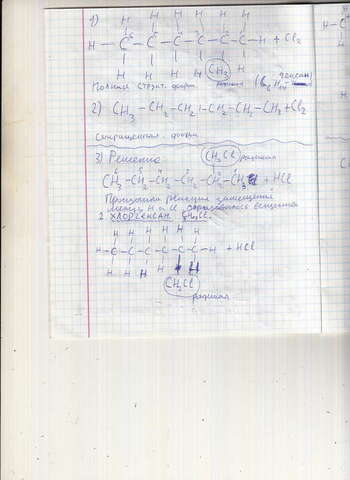 1) H H H H H
H - C⁶ - C⁵ - C⁴ - C³ - C² - C¹ - H + Cl₂
H H H H CH₃ H
Полная структ. форм. гексан
2) CH₃ - CH₂ - CH₂ - CH₂ - CH₂ - CH₃ + Cl₂
Сокращенная форм.
3) Решение CH₂Cl радикал
CH₃ - CH₂ - CH₂ - CH₂ - CH - CH₃ + HCl
Произошла реакция замещения
между H и Cl образовалось вещество
2 хлоргексан
H H H H H H
H - C - C - C - C - C - C - H + HCl
H H H H H H
CH₂Cl
радикал